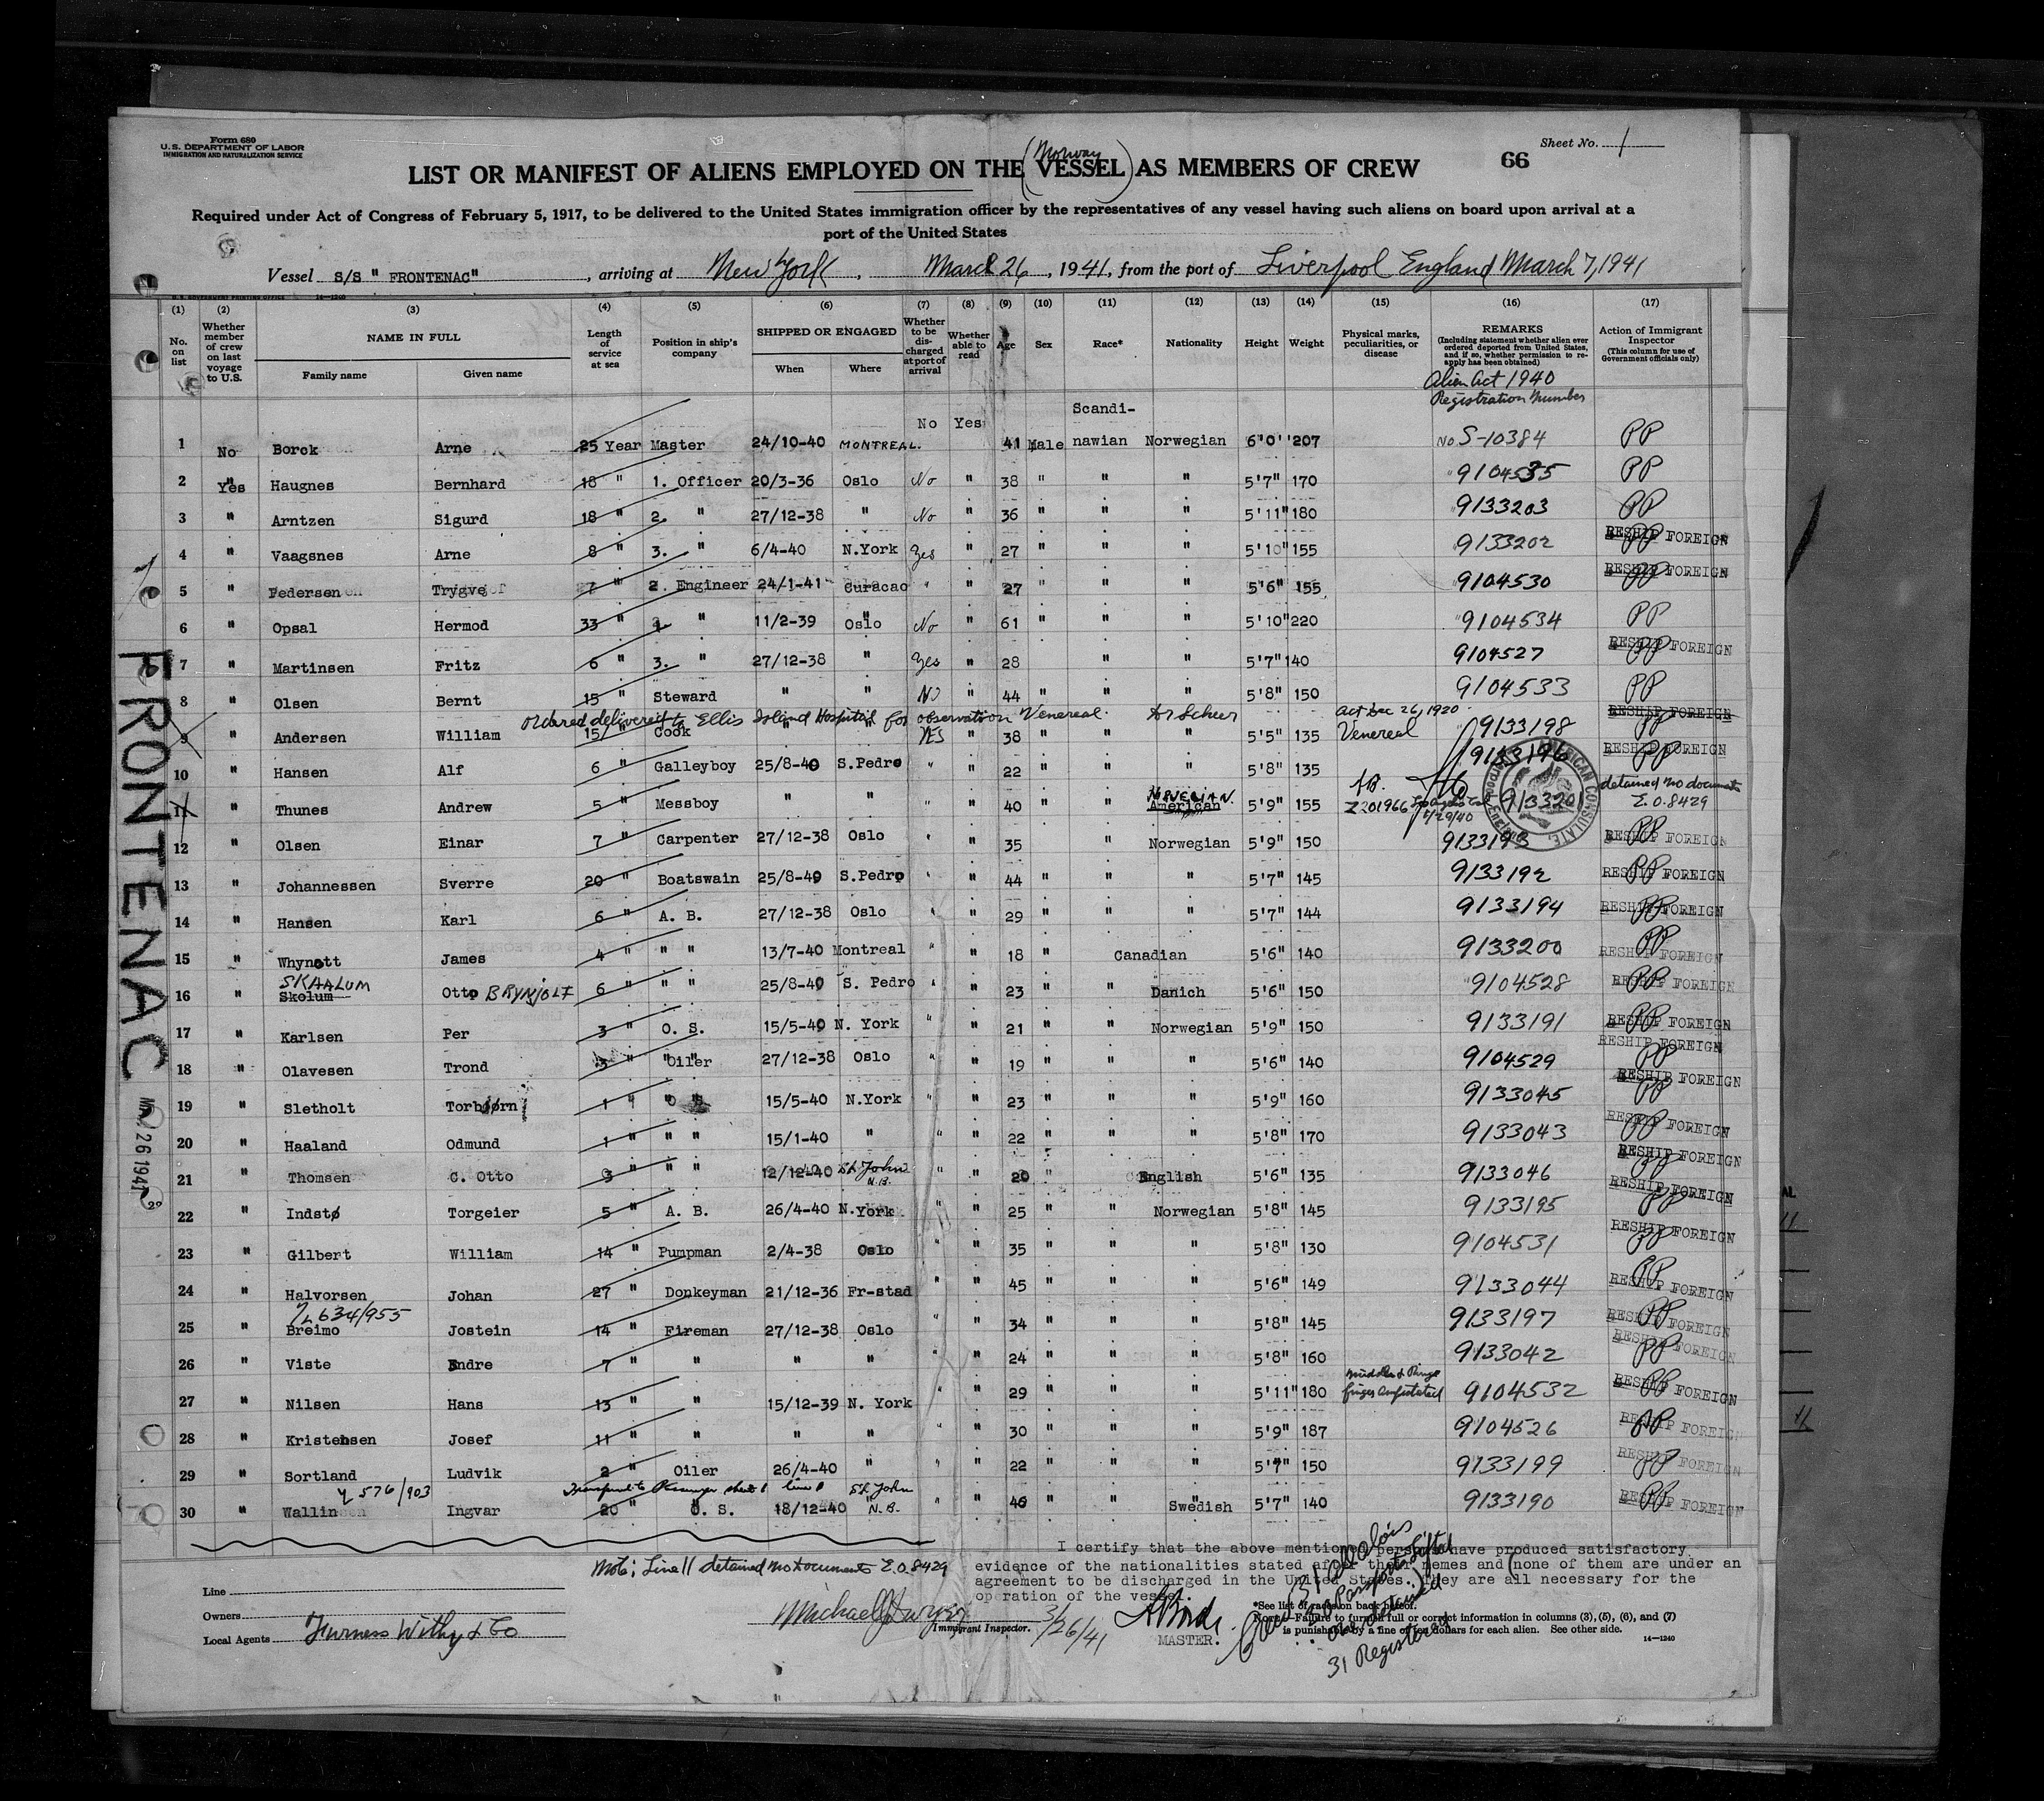 Form 680
U.S. DEPARTMENT OF LABOR
IMMIGRATION AND NATURALIZATION SERVICE
Sheet No. 1
66
Norway
LIST OR MANIFEST OF ALIENS EMPLOYED ON THE (VESSEL) AS MEMBERS OF CREW
Required under Act of Congress of February 5, 1917, to be delivered to the United States immigration officer by the representatives of any vessel having such aliens on board upon arrival at a
port of the United States
Vessel S/S " FRONTENAC" , arriving at New York , March 26 , 1941, from the port of Liverpool England March 7, 1941
(1) (2) (3) (4) (5) (6) (7) (8) (9) (10) (11) (12) (13) (14) (15) (16) (17)
No. on list
Whether member of crew on last voyage to U.S.
NAME IN FULL
Family name Given name
Length of service at sea
Position in ship's company
SHIPPED OR ENGAGED
When Where
Whether to be discharged at port of arrival
Whether able to read
Age Sex Race* Nationality Height Weight
Physical marks, peculiarities, or disease
REMARKS
(Including statement whether alien ever ordered deported from United States, and if so, whether permission to reapply has been obtained)
Alien Act 1940
Registration Number
Action of Immigrant Inspector
(This column for use of Government officials only)
1 No Borck Arne 25 Year Master 24/10-40 MONTREAL. No Yes 41 Male Scandi-nawian Norwegian 6'0" 207 No S-10384 PP
2 Yes Haugnes Bernhard 18 " 1. Officer 20/3-36 Oslo No " 38 " " " 5'7" 170 " 9104535 PP
3 " Arntzen Sigurd 18 " 2. " 27/12-38 " No " 36 " " " 5'11" 180 " 9133203 PP
4 " Vaagsnes Arne 8 " 3. " 6/4-40 N.York Yes " 27 " " " 5'10" 155 " 9133202 PP RESHIP FOREIGN
5 " Pedersen Trygve 7 " 2. Engineer 24/1-41 Curacao " " 27 " " " 5'6" 155 " 9104530 PP RESHIP FOREIGN
6 " Opsal Hermod 33 " 1. " 11/2-39 Oslo No " 61 " " " 5'10" 220 " 9104534 PP
7 " Martinsen Fritz 6 " 3. " 27/12-38 " Yes " 28 " " 5'7" 140 9104527 PP RESHIP FOREIGN
8 " Olsen Bernt 15 " Steward " " No " 44 " " " 5'8" 150 9104533 PP
Ordered delivered to Ellis Island Hospital for observation Venereal. Dr Scheer Act Dec 26, 1920.
9 " Andersen William 15 " Cook " " YES " 38 " " " 5'5" 135 Venereal 9133198 PP RESHIP FOREIGN
10 " Hansen Alf 6 " Galleyboy 25/8-40 S.Pedro " " 22 " " " 5'8" 135 9133196 PP RESHIP FOREIGN
11 " Thunes Andrew 5 " Messboy " " " " 40 " " American 5'9" 155 Z201966 9133201 detained no documents E.O. 8429
AMERICAN CONSULATE.
12 " Olsen Einar 7 " Carpenter 27/12-38 Oslo " " 35 " Norwegian 5'9" 150 9133193 PP RESHIP FOREIGN
13 " Johannessen Sverre 20 " Boatswain 25/8-40 S.Pedro " " 44 " " " 5'7" 145 9133192 PP RESHIP FOREIGN
14 " Hansen Karl 6 " A. B. 27/12-38 Oslo " " 29 " " " 5'7" 144 9133194 PP RESHIP FOREIGN
15 " Whynott James 4 " " " 13/7-40 Montreal " " 18 " Canadian 5'6" 140 9133200 PP RESHIP FOREIGN
16 " SKAALUM Skolum Otto BRYNJOLF 6 " " " 25/8-40 S. Pedro " " 23 " " Danich 5'6" 150 " 9104528 PP RESHIP FOREIGN
17 " Karlsen Per 3 " O. S. 15/5-40 N. York " " 21 " " Norwegian 5'9" 150 9133191 PP RESHIP FOREIGN
18 " Olavesen Trond 3 " Oiler 27/12-38 Oslo " " 19 " " " 5'6" 140 9104529 PP RESHIP FOREIGN
19 " Sletholt Torbjørn 1 " O S 15/5-40 N.York " " 23 " " " 5'9" 160 9133045 PP RESHIP FOREIGN
20 " Haaland Odmund 1 " " " 15/1-40 " " " 22 " " " 5'8" 170 9133043 PP RESHIP FOREIGN
21 " Thomsen C. Otto 3 " " " 12/12-40 St. John N.B. " " 20 " English 5'6" 135 9133046 PP RESHIP FOREIGN
22 " Indstø Torgeier 5 " A. B. 26/4-40 N.York " " 25 " " Norwegian 5'8" 145 9133195 PP RESHIP FOREIGN
23 " Gilbert William 14 " Pumpman 2/4-38 Oslo " " 35 " " " 5'8" 130 9104531 PP RESHIP FOREIGN
24 " Halvorsen Johan 27 " Donkeyman 21/12-36 Fr-stad " " 45 " " " 5'6" 149 9133044 PP RESHIP FOREIGN
634/955
25 " Breimo Jostein 14 " Fireman 27/12-38 Oslo " " 34 " " " 5'8" 145 9133197 PP RESHIP FOREIGN
26 " Viste Endre 7 " " " " " " 24 " " " 5'8" 160 9133042 PP RESHIP FOREIGN
27 " Nilsen Hans 13 " " 15/12-39 N. York " " 29 " " " 5'11" 180 9104532 PP RESHIP FOREIGN
28 " Kristensen Josef 11 " " " " " " 30 " " " 5'9" 187 9104526 PP RESHIP FOREIGN
29 " Sortland Ludvik 2 " Oiler 26/4-40 " " " 22 " " " 5'7" 150 9133199 PP RESHIP FOREIGN
576/903 Passenger sheet 1 line
30 " Wallin Ingvar 20 " O. S. 18/12-40 St. John N.B. " " 46 " " Swedish 5'7" 140 9133190 PP RESHIP FOREIGN
Note; Line 11 detained no documents E.O. 8429
I certify that the above mentioned persons have produced satisfactory
evidence of the nationalities stated after their nemes and (none of them are under an
agreement to be discharged in the United States.) They are all necessary for the
operation of the vessel.
Line
Owners
Local Agents Furness Withy & Co
Immigrant Inspector. 3/26/41
MASTER.
*See list of races on back hereof.
Note.—Failure to furnish full or correct information in columns (3), (5), (6), and (7)
is punishable by a fine of ten dollars for each alien. See other side.
14—1240
one detained
31 Registered
FRONTENAC
MAR 26 1941